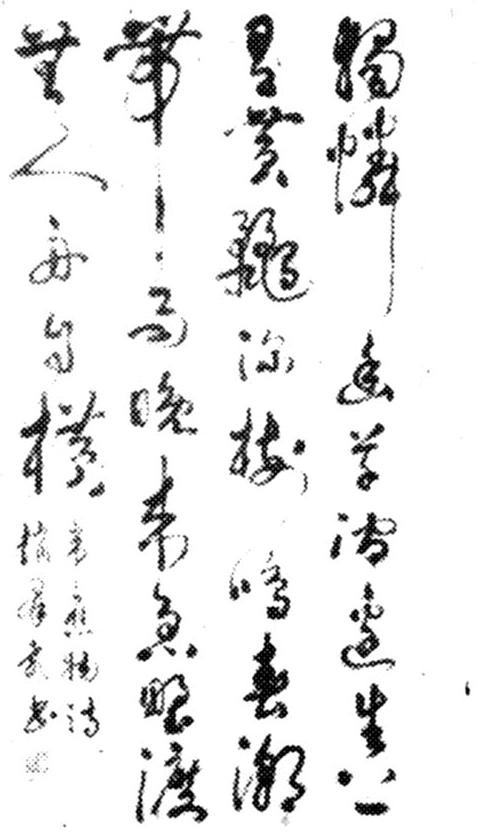 獨憐幽草澗邊生上
有黃鸝深樹鳴春潮
帶雨晚來急野渡
無人舟自橫
韋應物詩
書